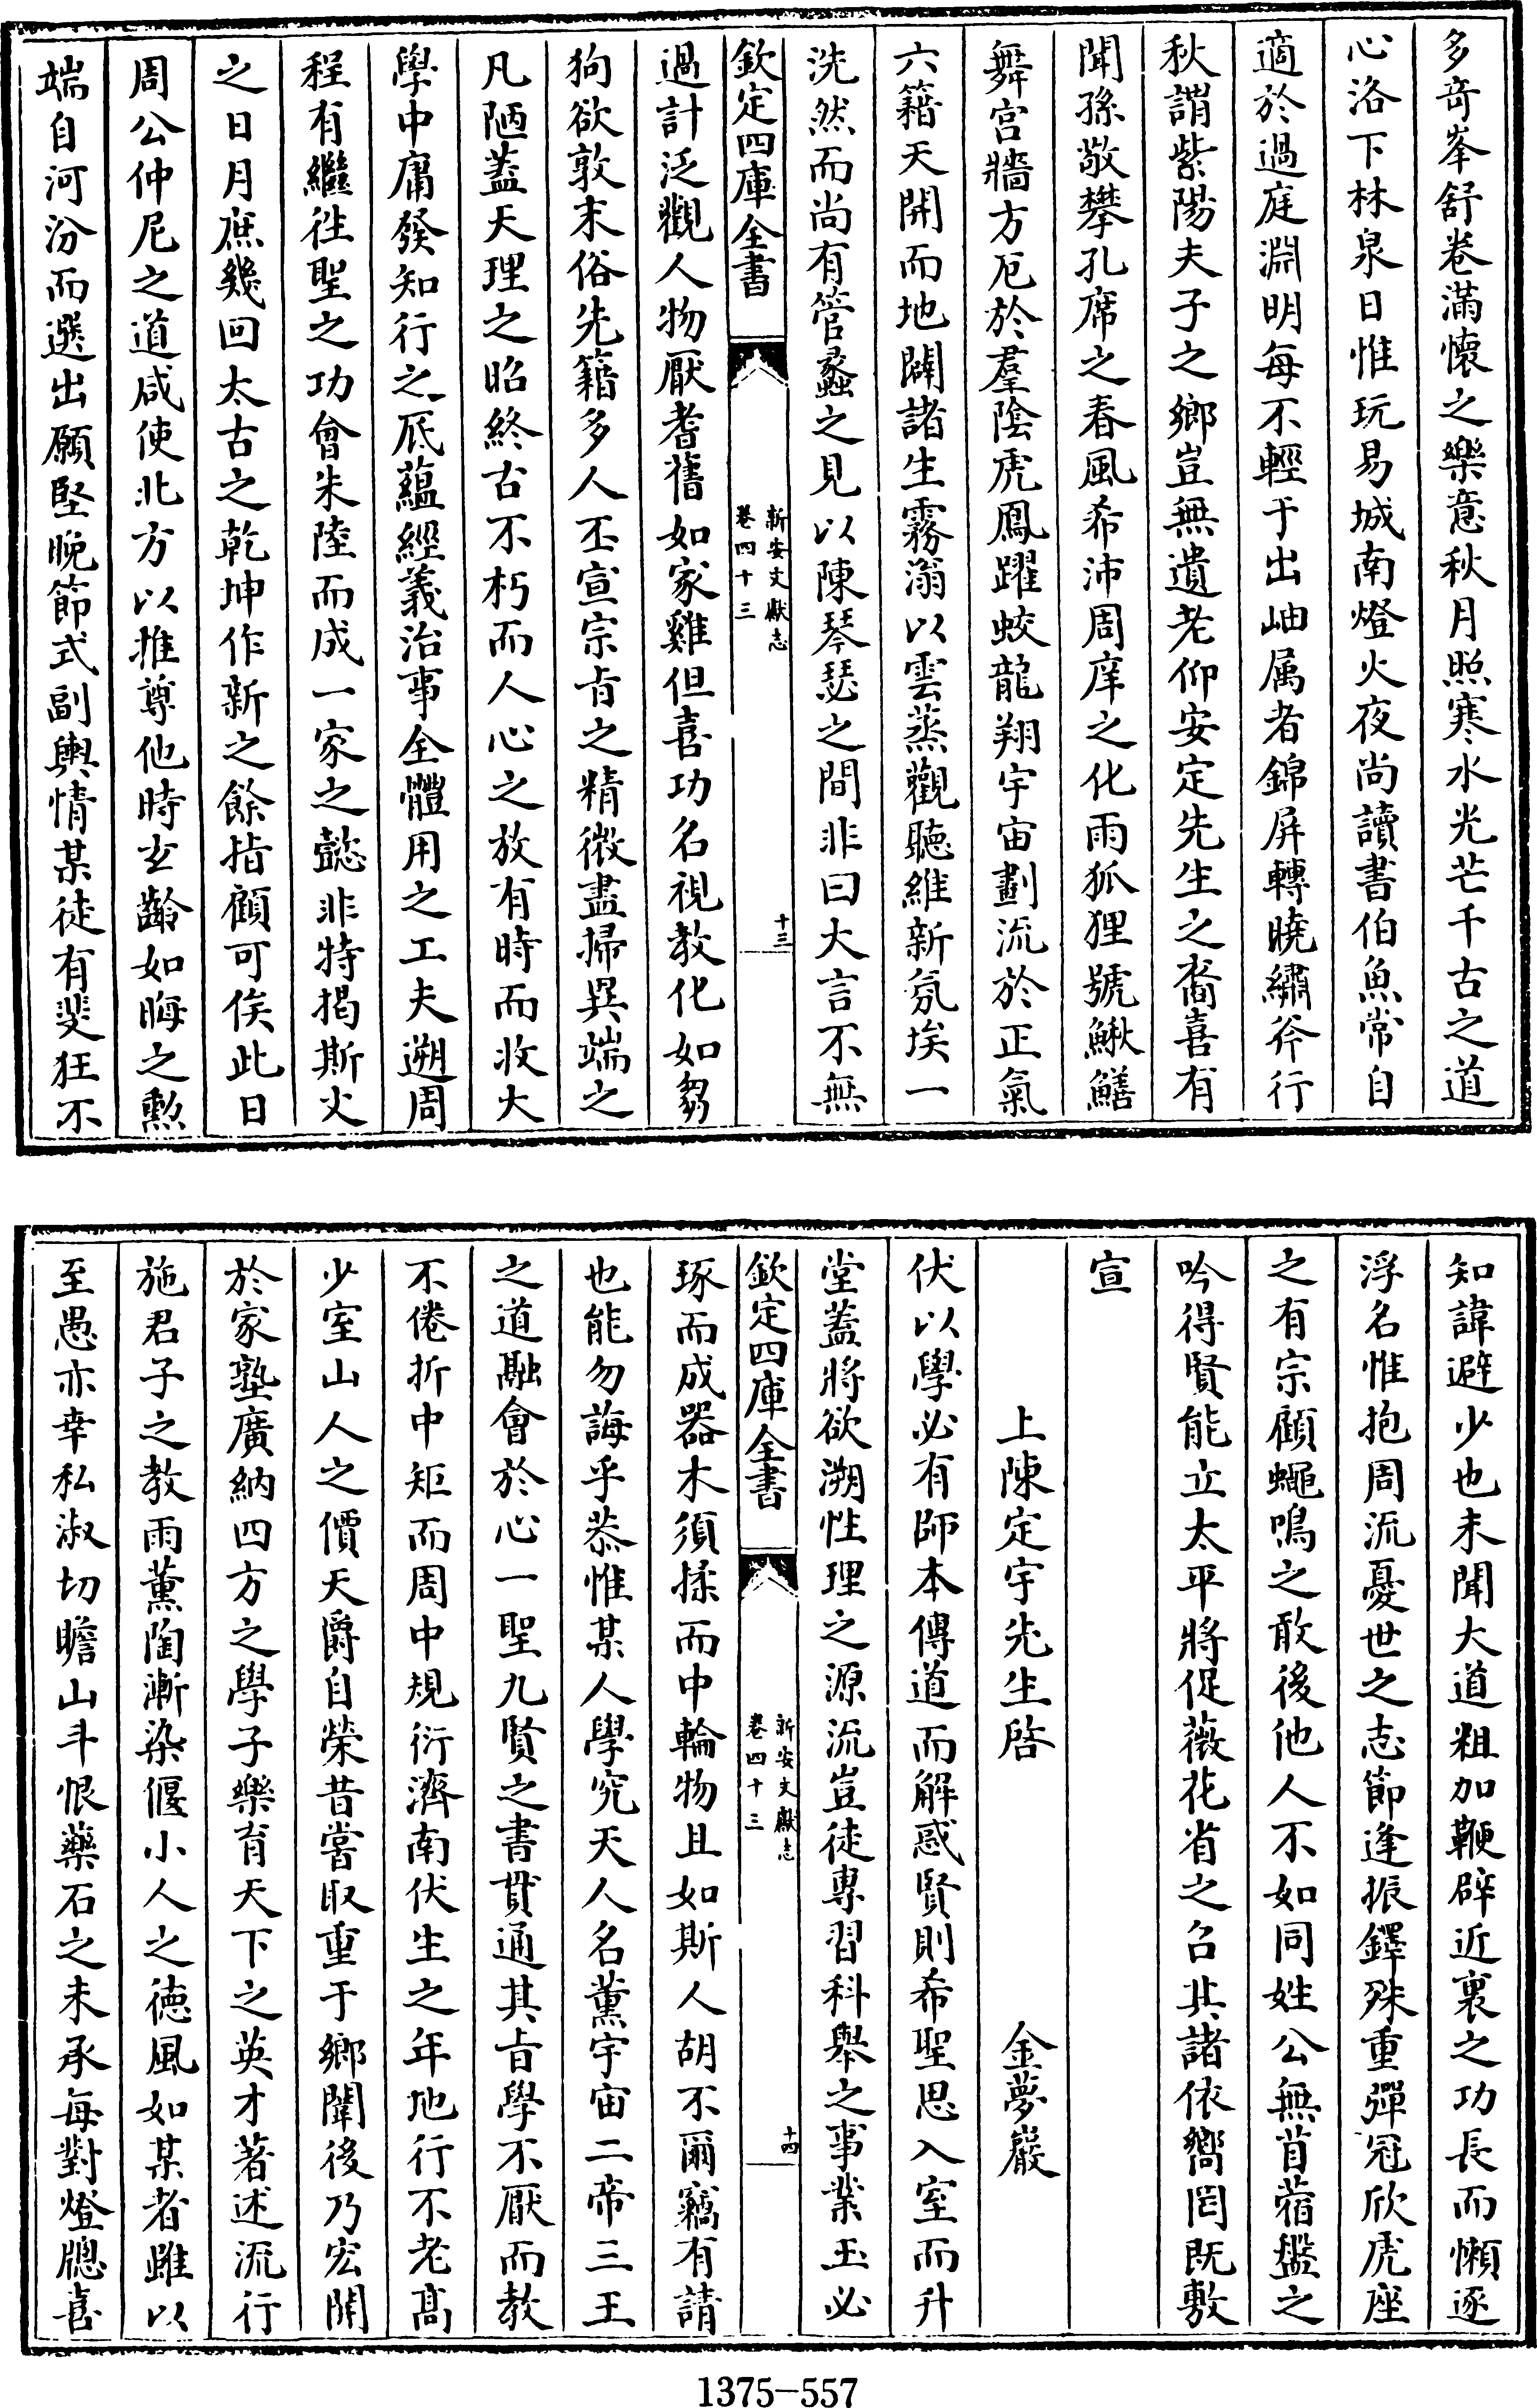 多奇峯舒卷滿懷之樂意秋月照寒水光芒千古之道
心洛下林泉日惟玩易城南燈火夜尚讀書伯魚常自
適於過庭淵明每不輕于出岫属者錦屏轉曉繡斧行
秋謂紫陽夫子之鄉豈無遺老仰安定先生之裔喜有
聞孫敬攀孔席之春風希沛周庠之化雨狐狸號鰍鱔
舞宫牆方厄於羣陰虎鳳躍蛟龍翔宇宙劃流於正氣
六籍天開而地闢諸生霧滃以雲蒸觀聽維新氛埃一
洗然而尚有管蠡之見以陳琴瑟之間非曰大言不無
欽定四庫全書
新安文獻志
卷四十三
十三
過計泛觀人物厭耆舊如家雞但喜功名視教化如芻
狗欲敦末俗先籍多人丕宣宗㫖之精微盡掃異端之
凡陋蓋天理之昭終古不朽而人心之放有時而收大
學中庸發知行之底藴經義治事全體用之工夫遡周
程有繼徃聖之功會朱陸而成一家之懿非特揭斯文
之日月庶幾回太古之乾坤作新之餘指顧可俟此日
周公仲尼之道咸使北方以推尊他時玄齡如晦之勲
端自河汾而選出願堅晚節式副輿情某徒有斐狂不
知諱避少也未聞大道粗加鞭辟近裏之功長而懶逐
浮名惟抱周流憂世之志節逢振鐸殊重彈冠欣虎座
之有宗顧蠅鳴之敢後他人不如同姓公無苜蓿盤之
吟得賢能立太平將促薇花省之召其諸依嚮罔既敷
宣
上陳定宇先生啓
金夢巖
伏以學必有師本傳道而解惑賢則希聖思入室而升
堂蓋將欲溯性理之源流豈徒專習科舉之事業玉必
欽定四庫全書
新安文獻志
卷四十三
十四
琢而成器木須揉而中輪物且如斯人胡不爾竊有請
也能勿誨乎恭惟某人學究天人名薰宇宙二帝三王
之道融會於心一聖九賢之書貫通其㫖學不厭而教
不倦折中矩而周中規衍濟南伏生之年地行不老高
少室山人之價天爵自榮昔嘗取重于鄉闈後乃宏開
於家塾廣納四方之學子樂育天下之英才著述流行
施君子之教雨薰陶漸染偃小人之德風如某者雖以
至愚亦幸私淑切瞻山斗恨藥石之未承每對燈牕喜
1375-557